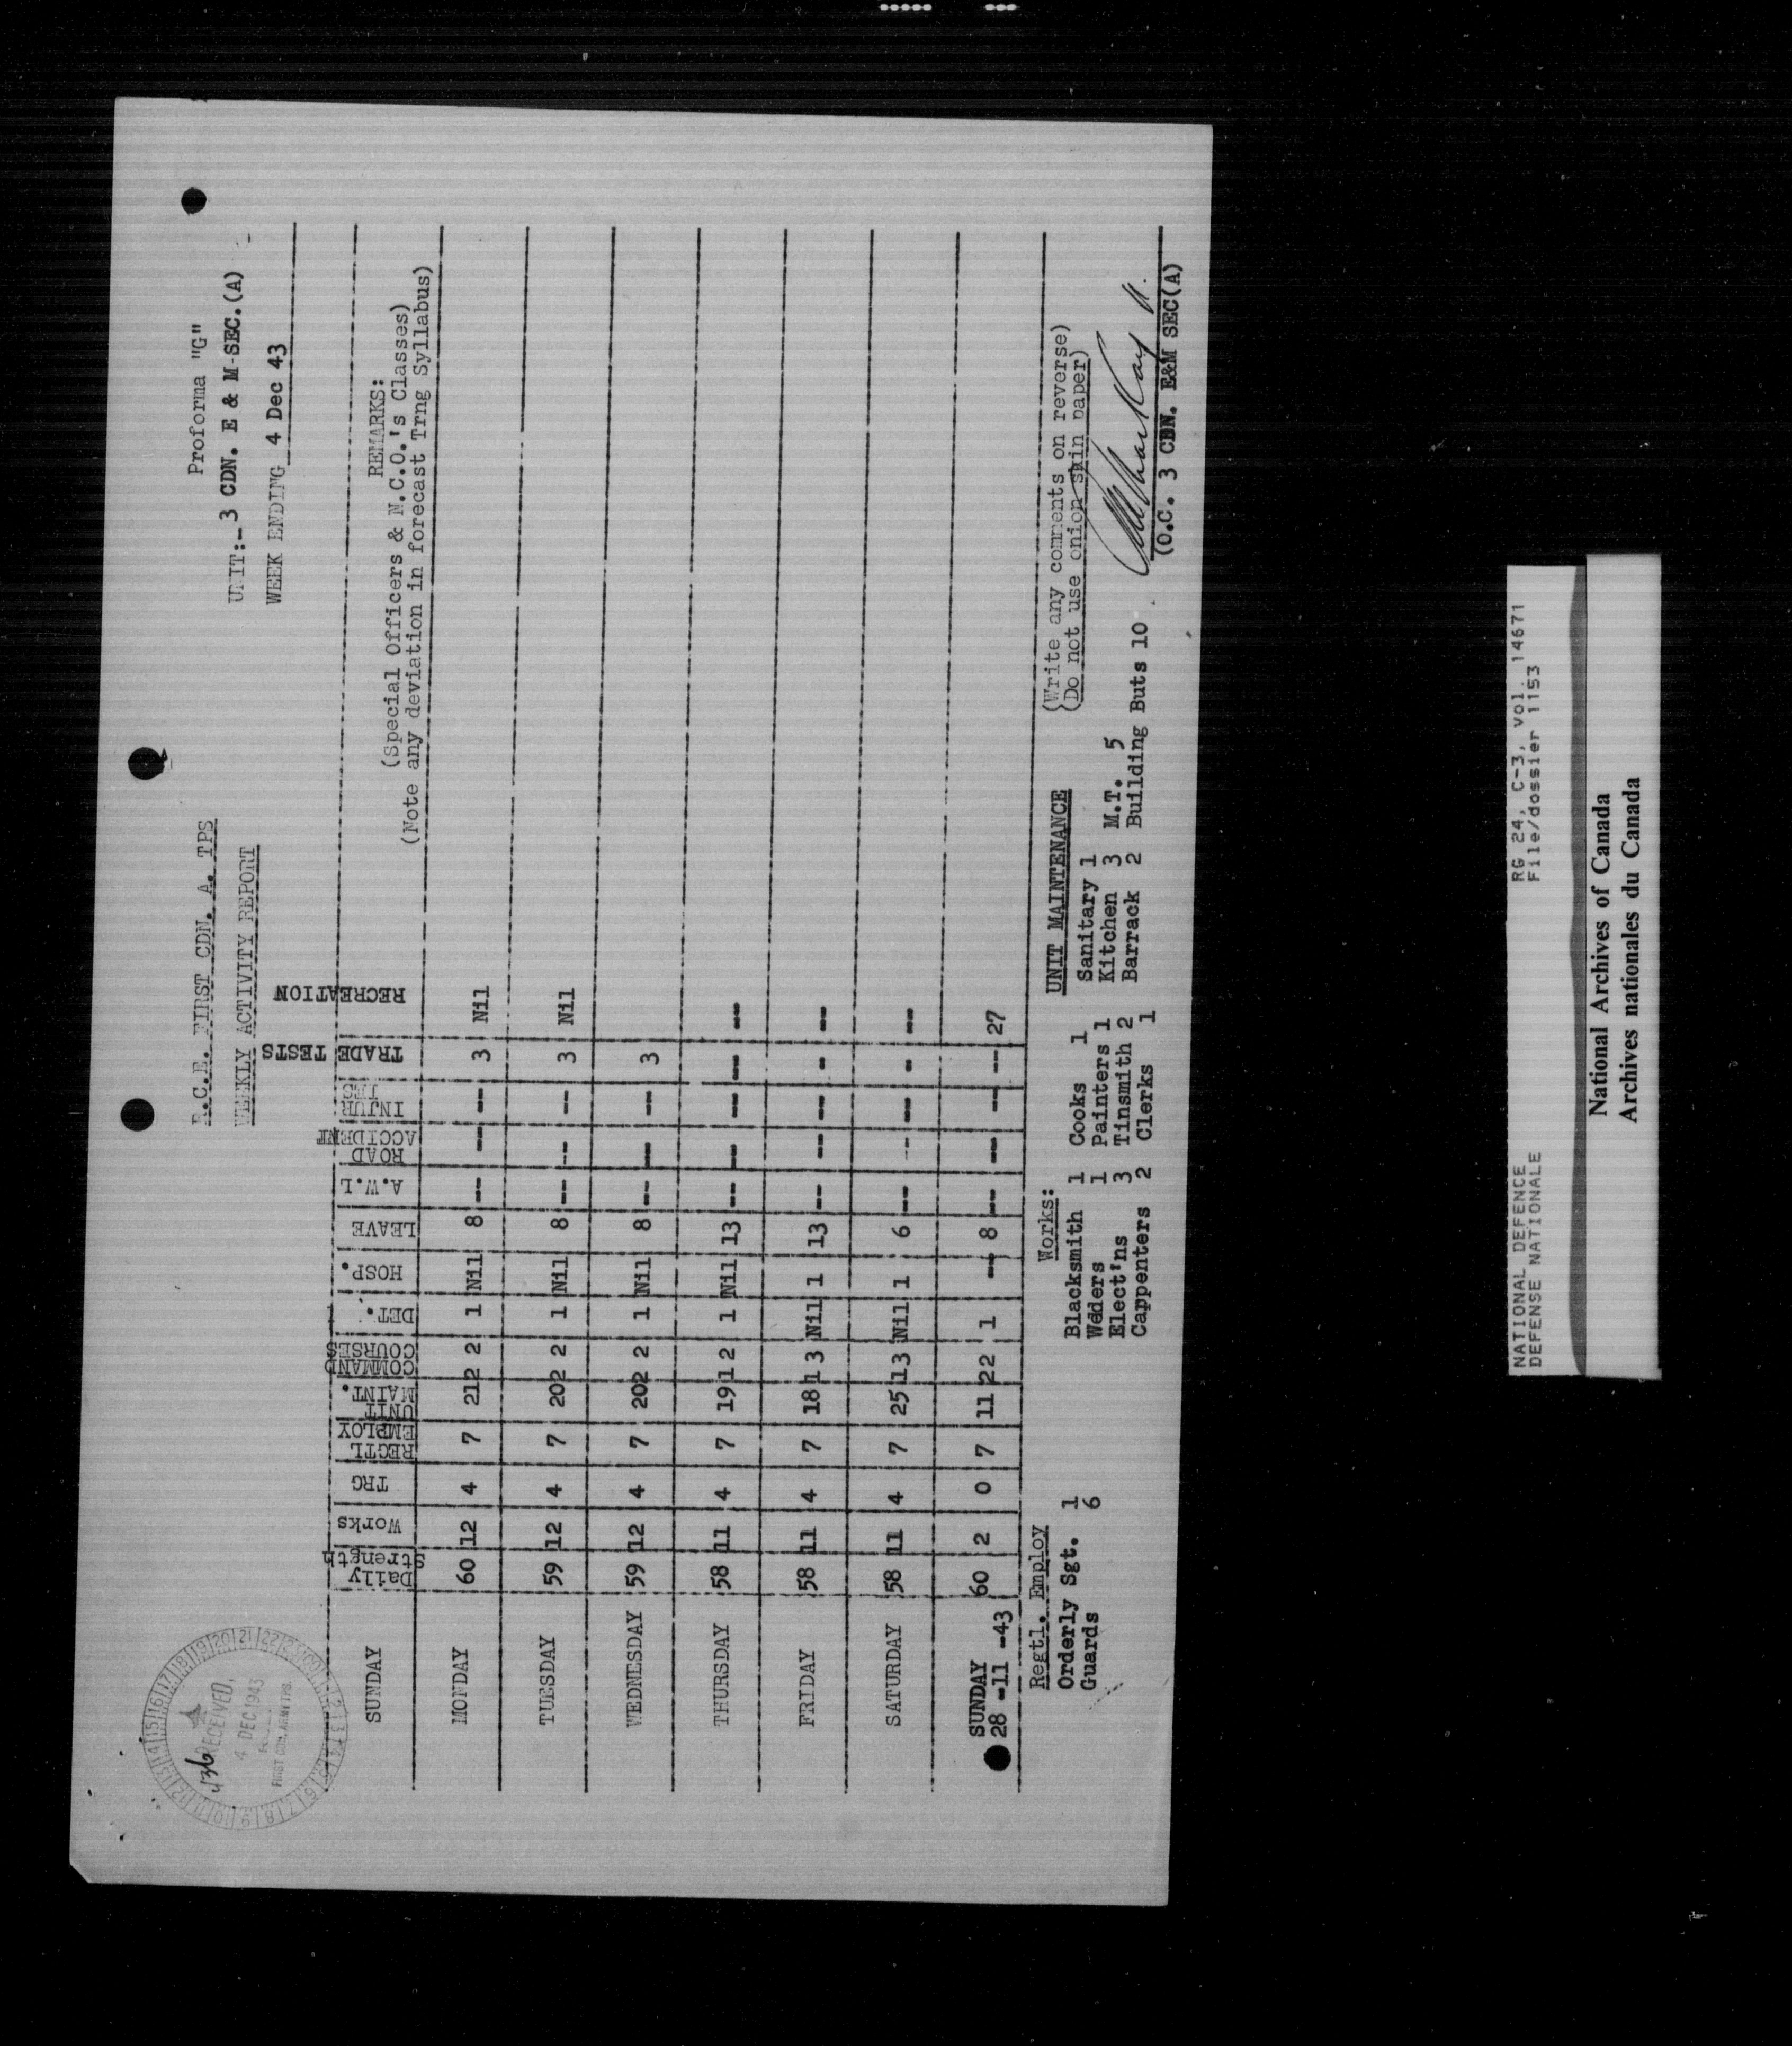 Proforma "G"
R.C.E. FIRST CDN. A. TPS
UNIT:- 3 CDN. E & M-SEC.(A)
WEEKLY ACTIVITY REPORT
WEEK ENDING 4 Dec 43
436 RECEIVED,
4 DEC 1943
FIRST CDN. ARMY TPS.
Daily Strength Works TRG REGTL EMPLOY UNIT MAINT. COMMAND COURSES DET. HOSP. LEAVE A.W.L ROAD ACCIDENT INJUR IES TRADE TESTS RECREATION
REMARKS:
(Special Officers & N.C.O.'s Classes)
(Note any deviation in forecast Trng Syllabus)
SUNDAY
MONDAY 60 12 4 7 212 2 1 Nil 8 -- -- -- 3 Nil
TUESDAY 59 12 4 7 202 2 1 Nil 8 -- -- -- 3 Nil
WEDNESDAY 59 12 4 7 202 2 1 Nil 8 -- -- -- 3
THURSDAY 58 11 4 7 191 2 1 Nil 13 -- -- -- -- --
FRIDAY 58 11 4 7 181 3 Nil 1 13 -- -- -- - --
SATURDAY 58 11 4 7 25 13 Nil 1 6 -- -- -- - --
SUNDAY
28 -11 -43 60 2 0 7 11 22 1 -- 8 -- -- -- -- 27
Regtl. Employ
Orderly Sgt. 1
Guards 6
Works:
Blacksmith 1 Cooks 1
Wedders 1 Painters 1
Elect'ns 3 Tinsmith 2
Cappenters 2 Clerks 1
UNIT MAINTENANCE
Sanitary 1
Kitchen 3 M.T. 5
Barrack 2 Building Buts 10
(Write any comments on reverse)
(Do not use onion skin paper)
(O.C. 3 CDN. E&M SEC(A)
NATIONAL DEFENCE RG 24, C-3, vol. 14671
DEFENSE NATIONALE File/dossier 1153
National Archives of Canada
Archives nationales du Canada